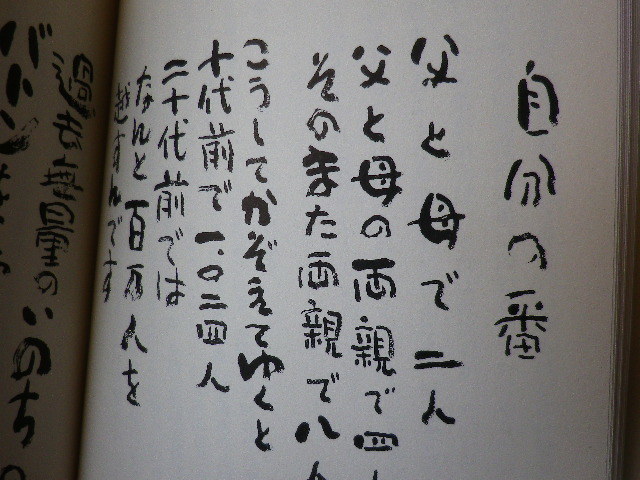 自分の番
父と母で二人
父と母の両親で四人
そのまた両親で八人
こうしてかぞえてゆくと
十代前で一、〇二四人
二十代前では
なんと百万人を
越すんです
過去無量の
いのちの
バトンを